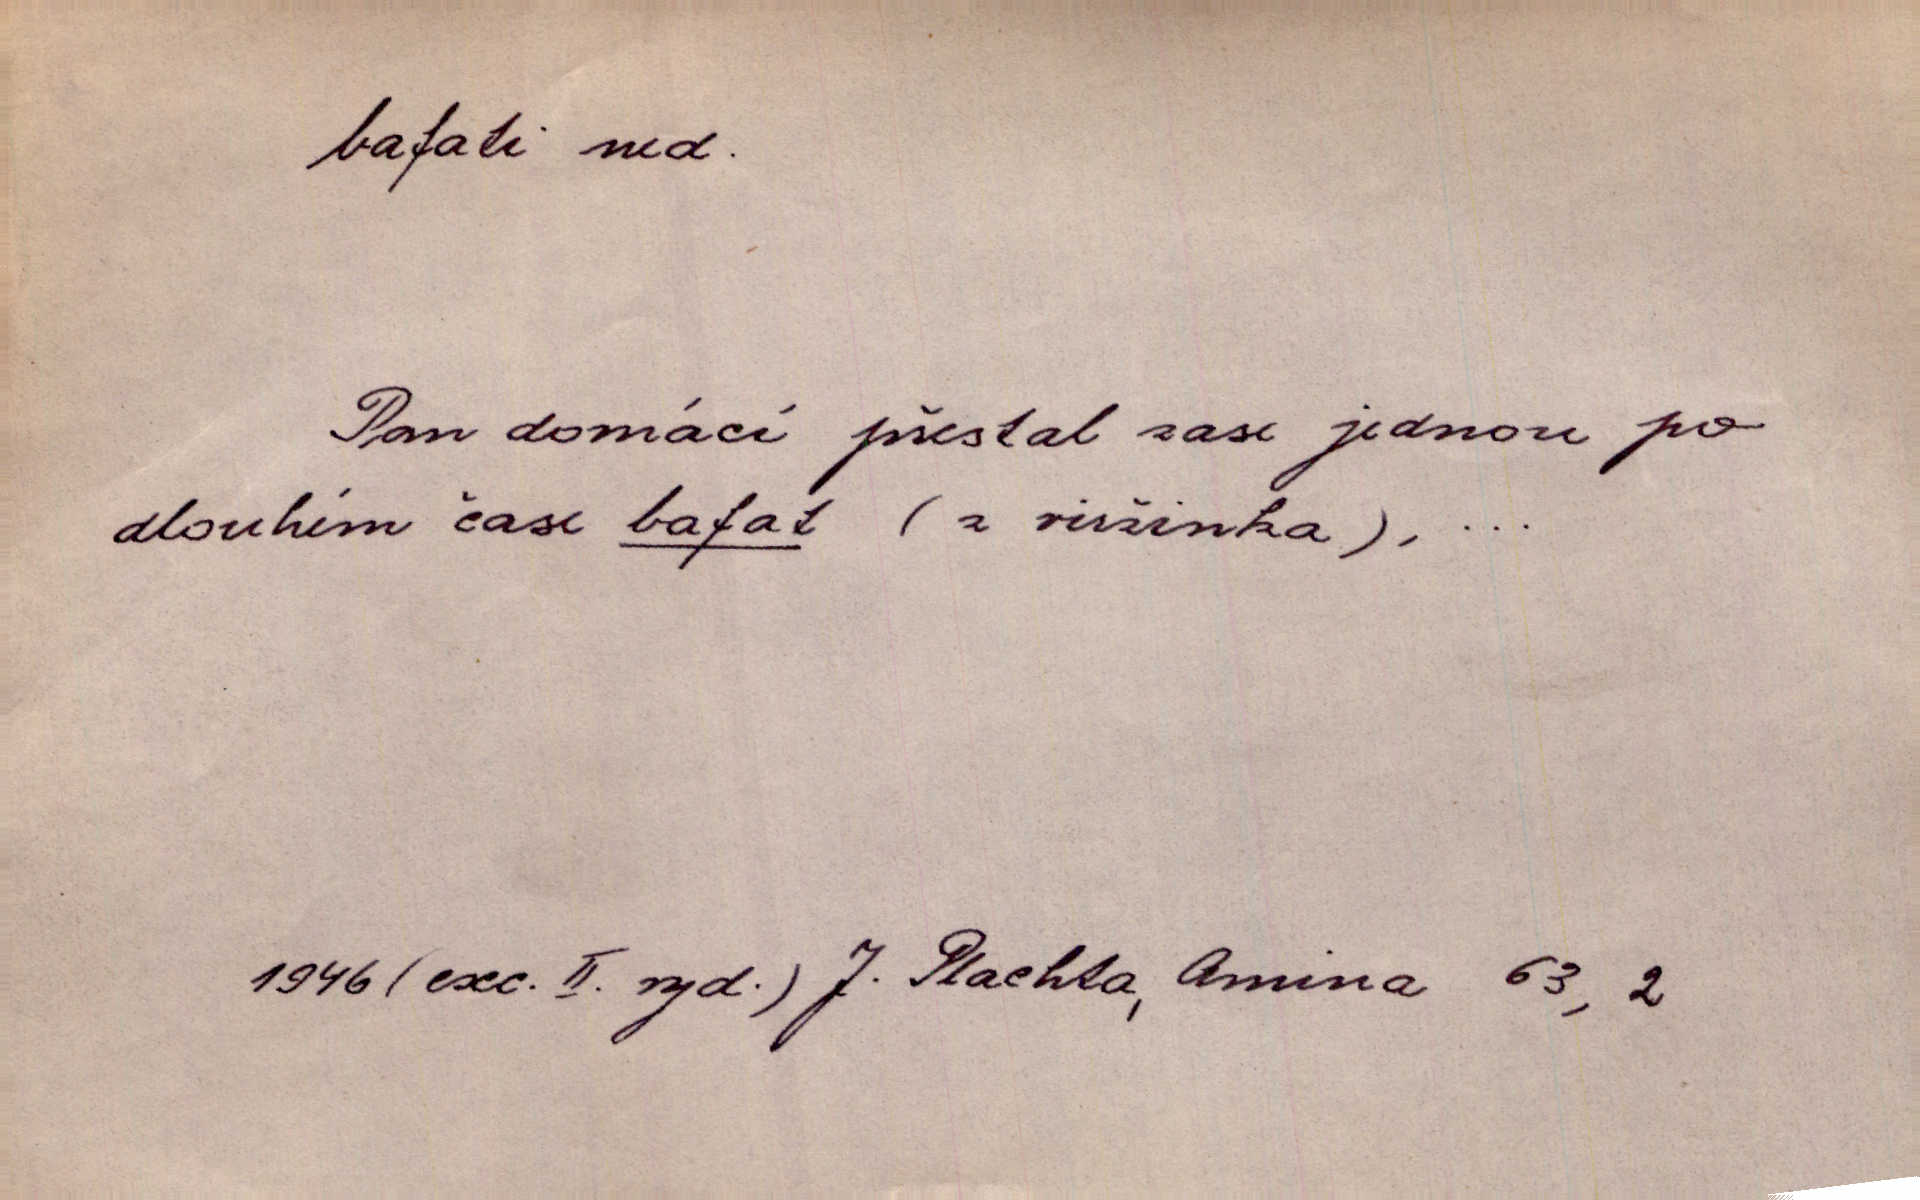 bafati ned.
Pan domácí přestal zase jednou po
dlouhém čase bafat (z viržinka), ...
1946 (exc. II. vyd.) J. Plachta, Amina 63, 2